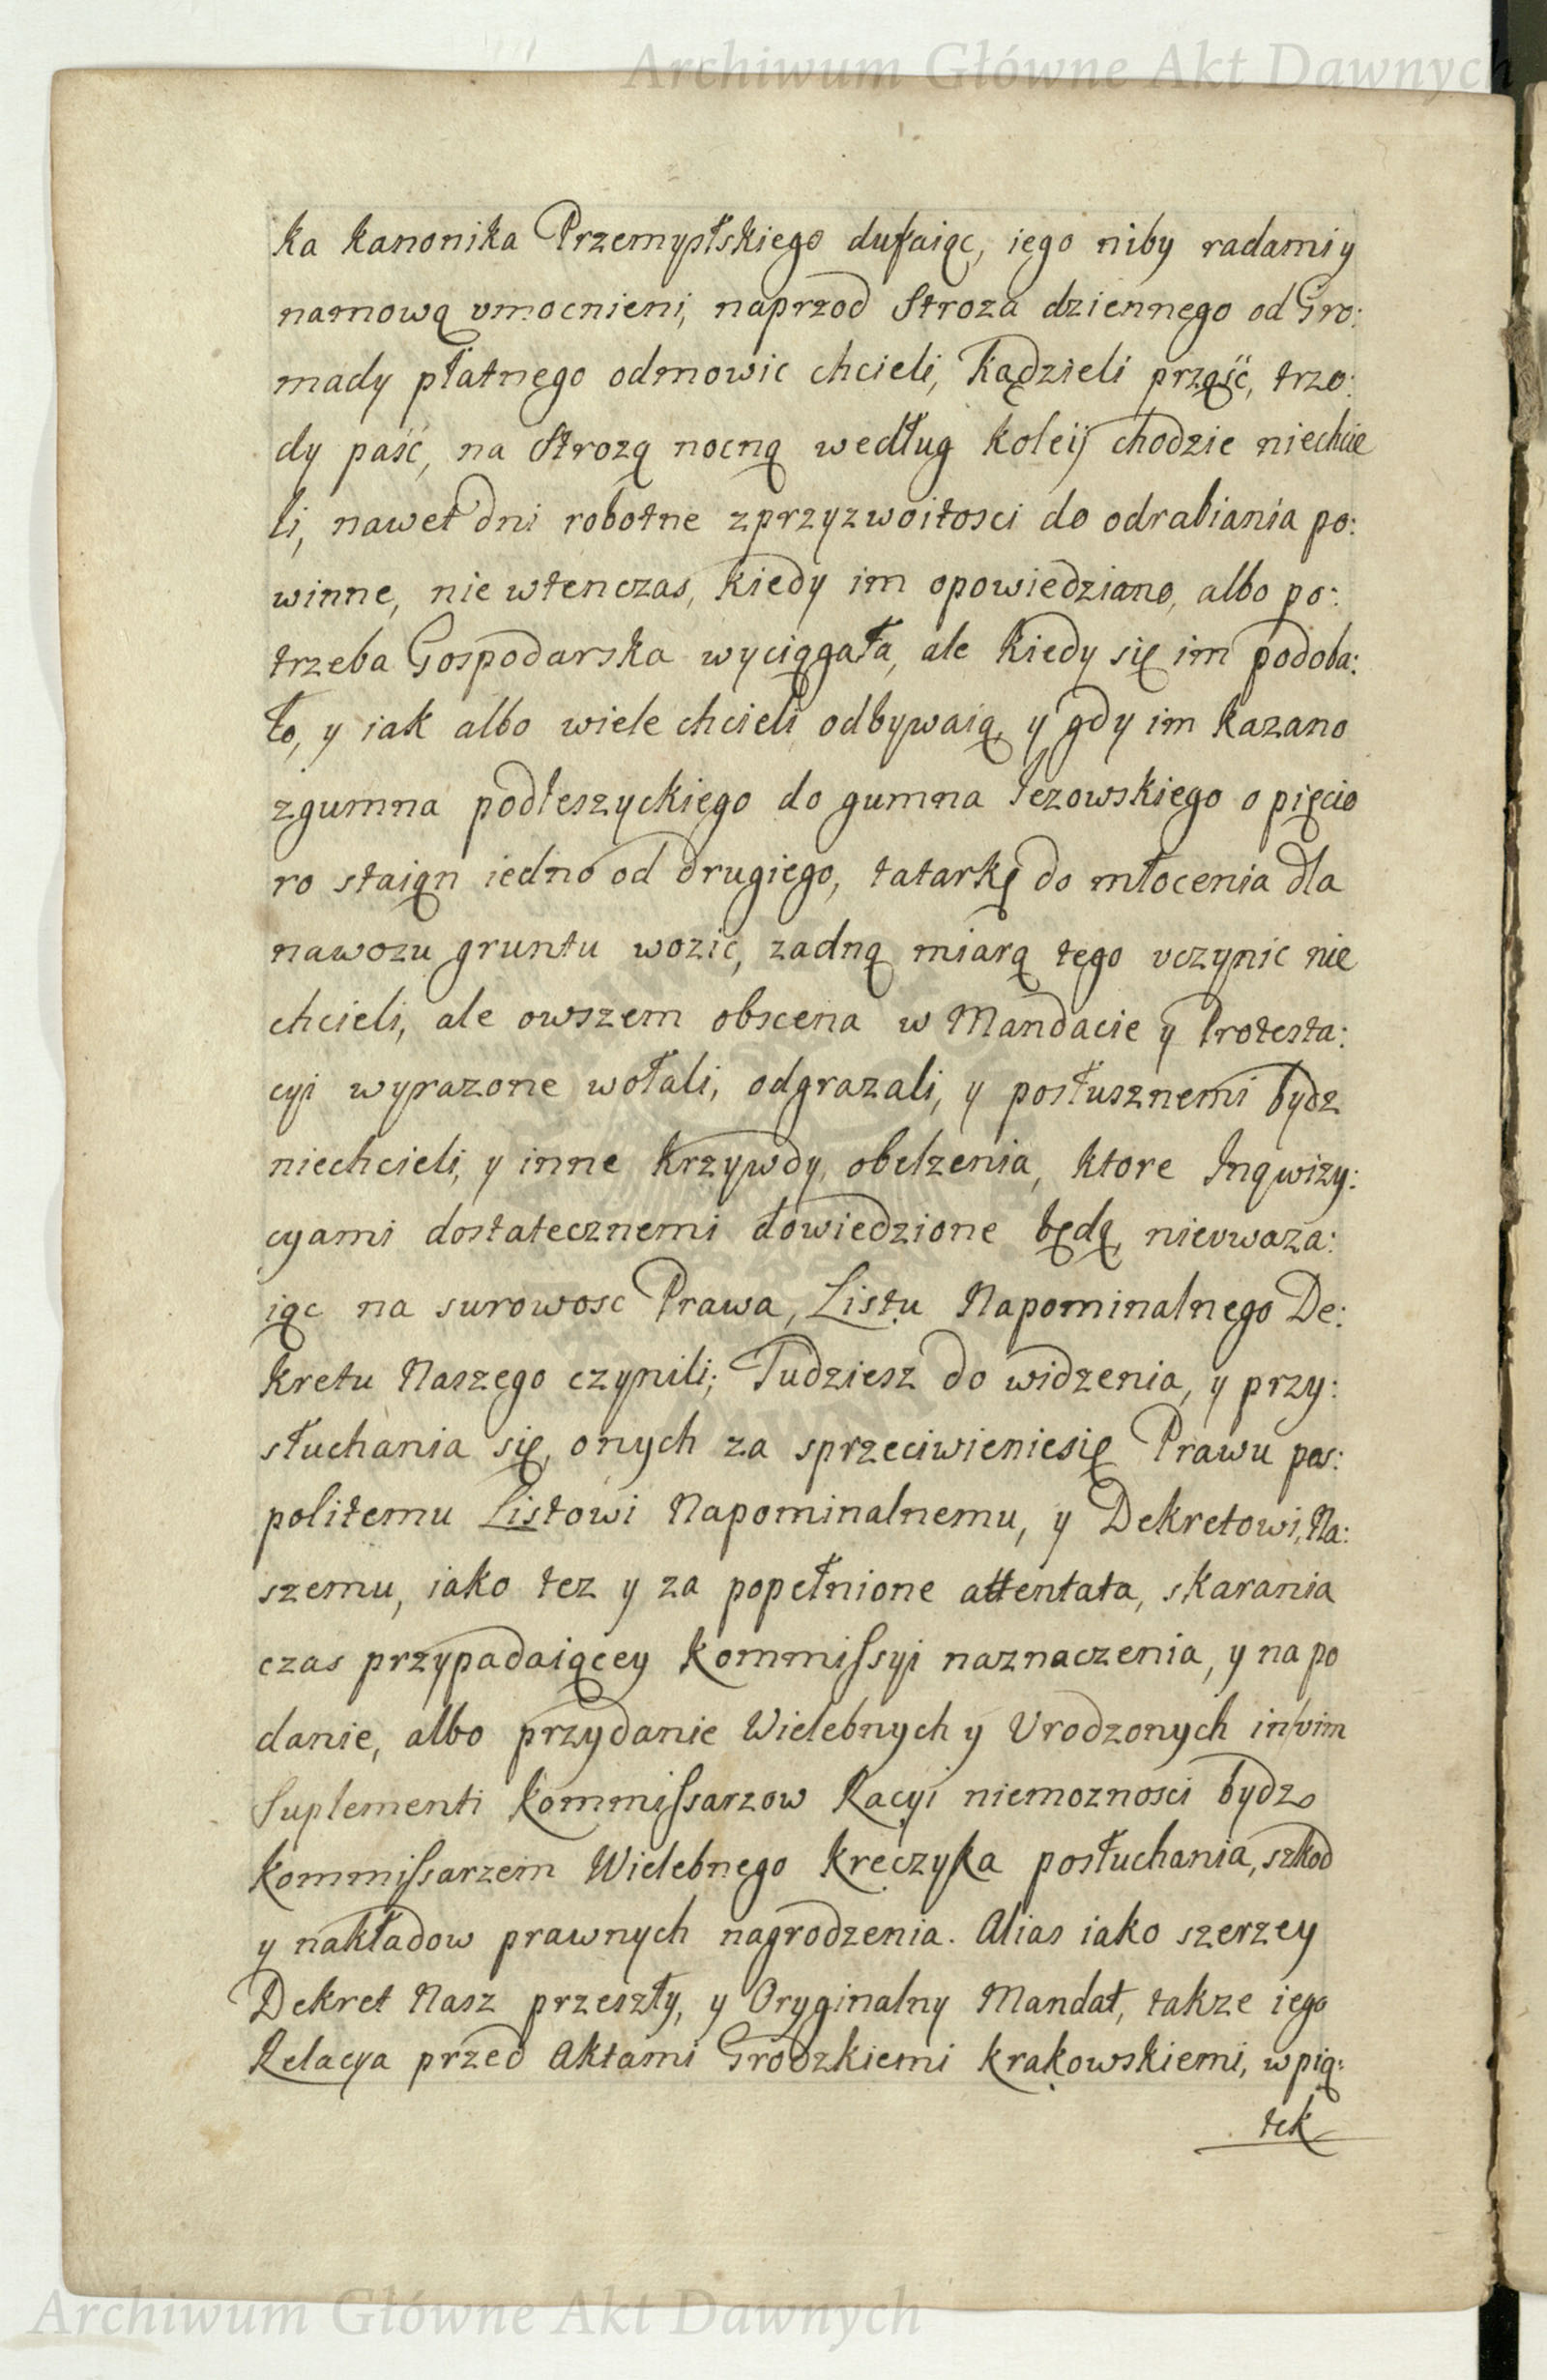 Archiwum Główne Akt Dawnych
ka kanonika Przemysłskiego dufaiąc, iego niby radami y
namową vmocnieni, naprzod Stroza dziennego od Gro:
mady płatnego odmowic chcieli, kądzieli prząśc, trzo:
dy paść, na Strozą nocną według koleij chodzic niechcie
li, nawet dni robotne zprzyzwoitosci do odrabiania po:
winne, nie wtenczas, kiedy im opowiedziano, albo po:
trzeba Gospodarska wyciągała, ale kiedy się im podoba:
ło, y iak albo wiele chcieli odbywaią, y gdy im kazano
zgumna podłeszyckiego do gumna Jezowskiego o pięcio
ro staiąn iedno od drugiego, tatarkę do młocenia dla
nawozu gruntu wozic, zadną miarą tego vczynic nie
chcieli, ale owszem obscena w Mandacie y Protesta:
cyi wyrazone wołali, odgrazali, y posłusznemi bydz
niechcieli, y inne krzywdy, obelzenia, ktore Inqwizy:
cyami dostatecznemi dowiedzione będą, nievwaza:
iąc na surowosc Prawa, Listu Napominalnego De:
kretu Naszego czynili; Tudziesz do widzenia, y przy:
słuchania się, onych za sprzeciwieniesię Prawu pos:
politemu Listowi Napominalnemu, y Dekretowi, Na:
szemu, iako tez y za popełnione attentata, skarania
czas przypadaiącey kommissyi naznaczenia, y na po
danie, albo przydanie Wielebnych y Vrodzonych in vim
Suplementi kommissarzow Racyi niemoznosci bydz
kommissarzem Wielebnego kręczyka posłuchania, szkod
y nakładow prawnych nagrodzenia. Alias iako szerzey
Dekret Nasz przeszły, y Oryginalny Mandat, takze iego
Relacya przed Aktami Grodzkiemi krakowskiemi, w pią:
tek
Archiwum Główne Akt Dawnych